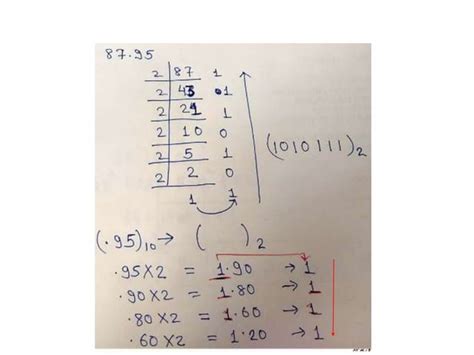 87.95
2 87 1
2 43 1
2 21 1
2 10 0
2 5 1
2 2 0
1 1
(1010111)2
(.95)10→ ( )2
.95X2 = 1.90 → 1
.90X2 = 1.80 → 1
.80X2 = 1.60 → 1
.60X2 = 1.20 → 1